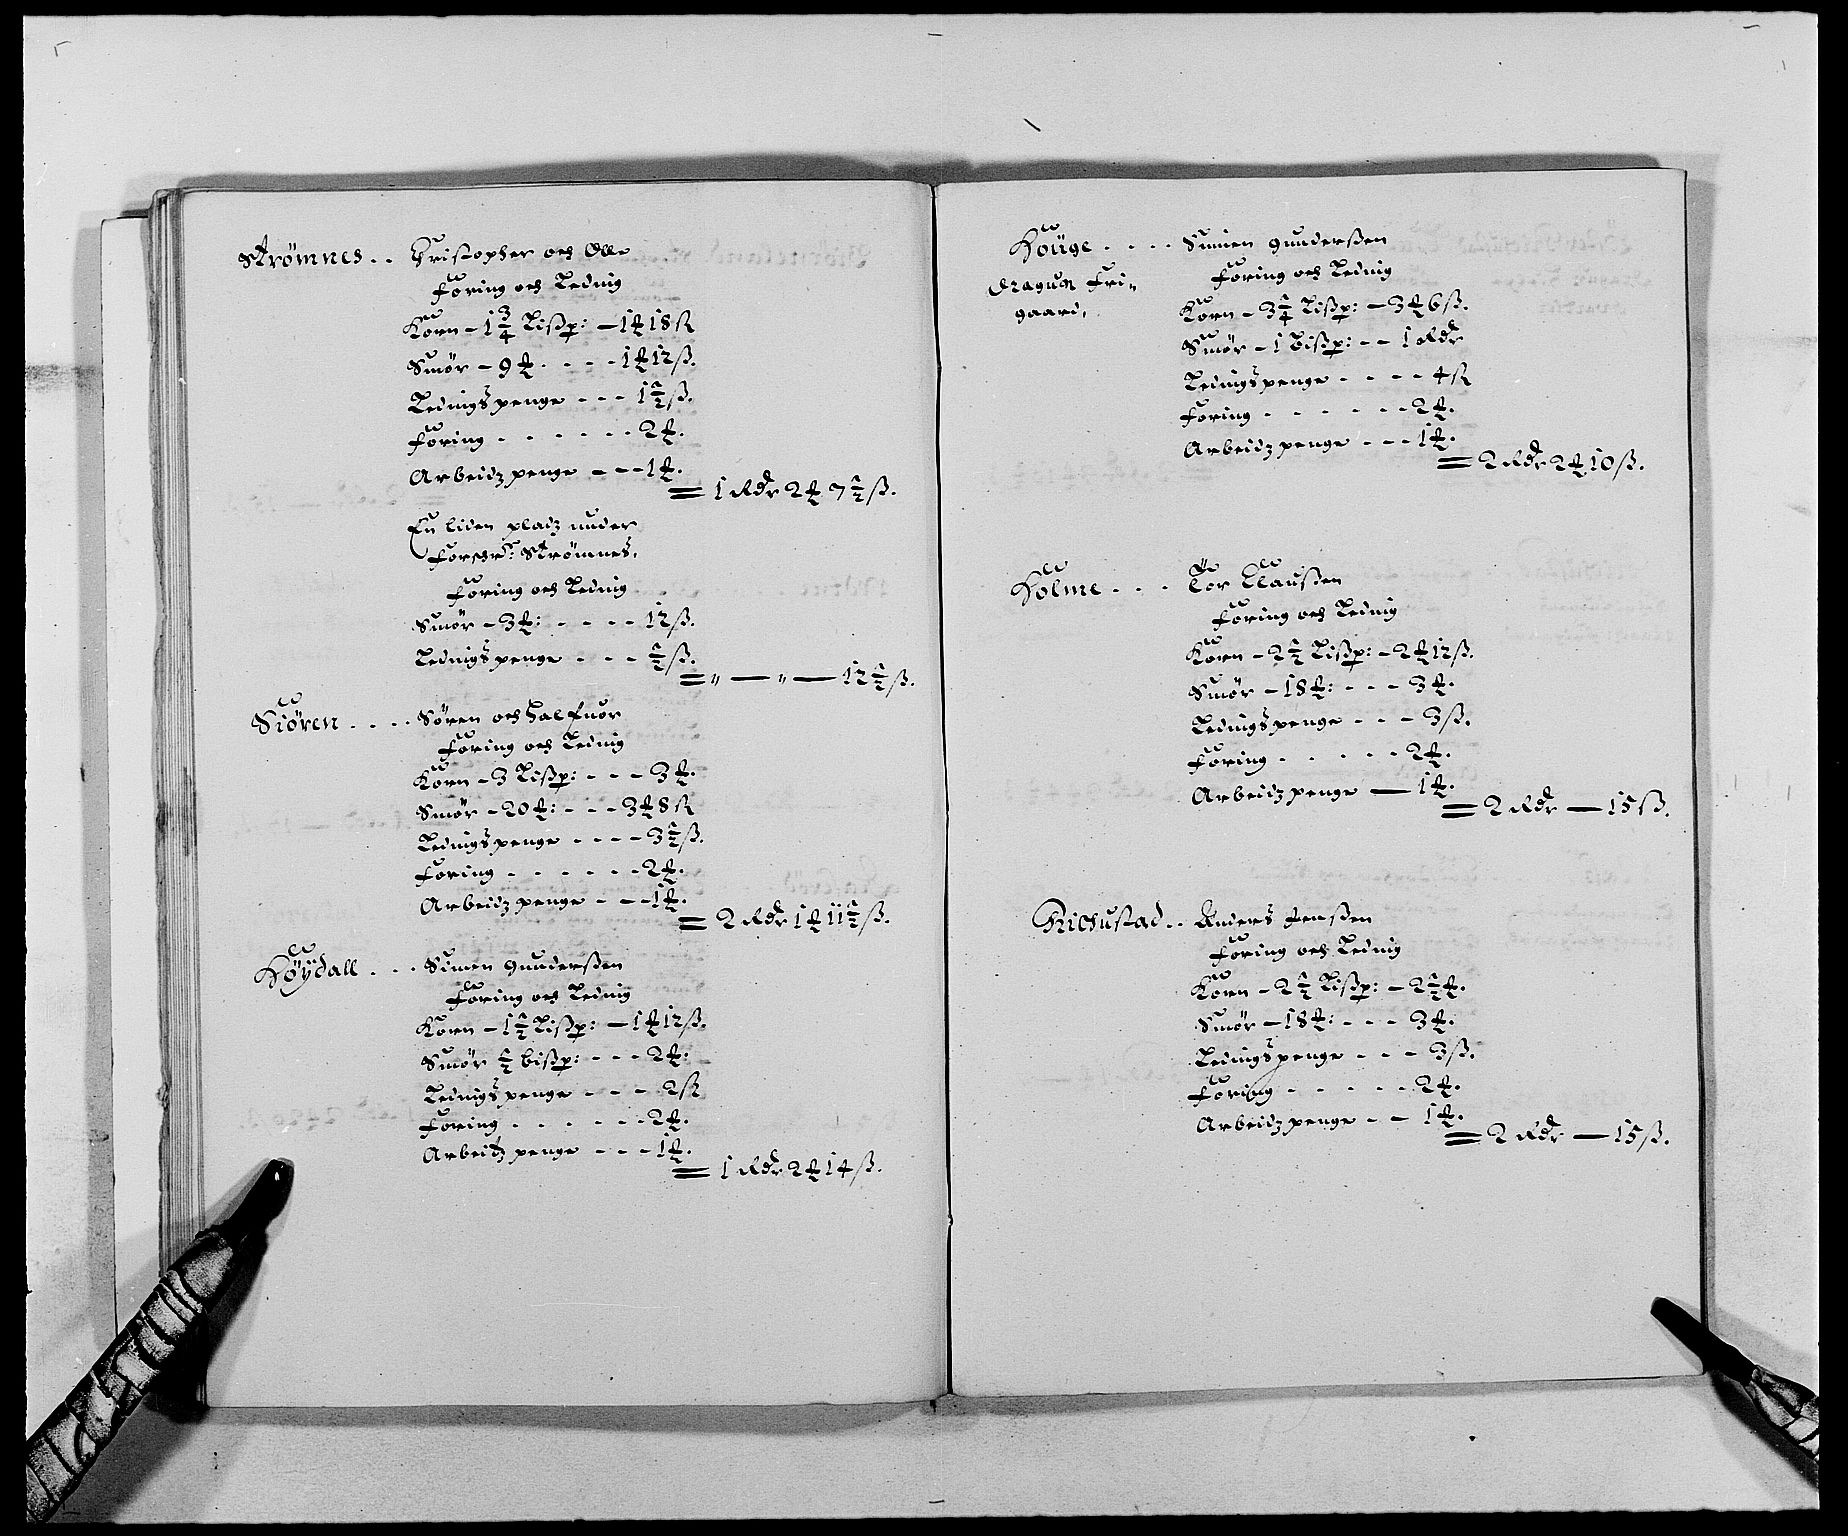 Strømnes . . Christopher och Olle
Foring och Leding
Korn - 1 3/4 Lißp: - 1 ℔ 18 ß
Smør - 9 ℔ . - - - 1 ℔ 12 ß.
Ledingspenge - - - 1 1/2 ß.
Foring . - - - - - 2 ℔.
Arbeidzpenge - - - 1 ℔.
= 1 Rdr 2 ℔ 7 1/2 ß.
En liden pladz under
forschr: Strømnes.
Foring och Leding
Smør - 3 ℔: - - - - 12 ß.
Ledingspenge - - - 1/2 ß.
= „ — „ — 12 1/2 ß.
Siøren . . . . Søren och Halfuor
Foring och Leding
Korn - 3 Lißp: - - - 3 ℔.
Smør - 20 ℔: - - - 3 ℔ 8 ß
Ledingspenge - - - - 3 1/2 ß.
Foring . . - - - - 2 ℔.
Arbeidzpenge - - - 1 ℔.
= 2 Rdr 1 ℔ 11 1/2 ß.
Høÿdall . . . Simen Gunderßen
Foring och Leding
Korn - 1 1/2 Lißp: - 1 ℔ 12 ß.
Smør 1/2 bißp: - - - 2 ℔:
Ledingspenge - - - 2 ß
Foring . . - - - - 2 ℔.
Arbeidzpenge - - - 1 ℔.
= 1 Rdr 2 ℔ 14 ß.
Houge . . . . Simen Gunderßen
Dragun Fri-
gaard,
Foring och Leding
Korn - 3 1/4 Lißp: - 3 ℔ 6 ß.
Smør - 1 Bißp: - - 1 Rdr
Ledingspenge - - - - 4 ß
Foring . - - - - - 2 ℔.
Arbeidzpenge - - - 1 ℔.
= 2 Rdr 2 ℔ 10 ß.
Holme . . . Tor Claußen
Foring och Leding
Korn - 2 1/2 Lißp: - 2 ℔ 12 ß.
Smør - 18 ℔: - - - 3 ℔.
Ledingspenge - - - 3 ß.
Foring . - - - - 2 ℔.
Arbeidzpenge — 1 ℔.
= 2 Rdr — 15 ß.
Anders Jenßen
Foring och Leding
Korn - 2 1/2 Lißp: - 2 1/2 ℔.
Smør - 18 ℔: - - - 3 ℔.
Ledingspenge - - - 3 ß.
Foring - - - - - 2 ℔.
Arbeidzpenge - - 1 ℔.
= 2 Rdr — 15 ß.